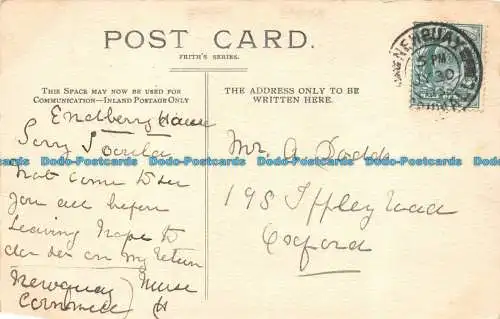 POST CARD.
FRITH'S SERIES.
THIS SPACE MAY NOW BE USED FOR
COMMUNICATION—INLAND POSTAGE ONLY
THE ADDRESS ONLY TO BE
WRITTEN HERE.
NEWQUAY
5 PM
30
House
Sorry I
not come to see
you all before
leaving hope to
on my return
Newquay
Cornwall
Mr. A Dodd
198 Iffley Road
Oxford
Dodo-Postcards Dodo-Postcards Dodo-Postcards Dodo-Postcards